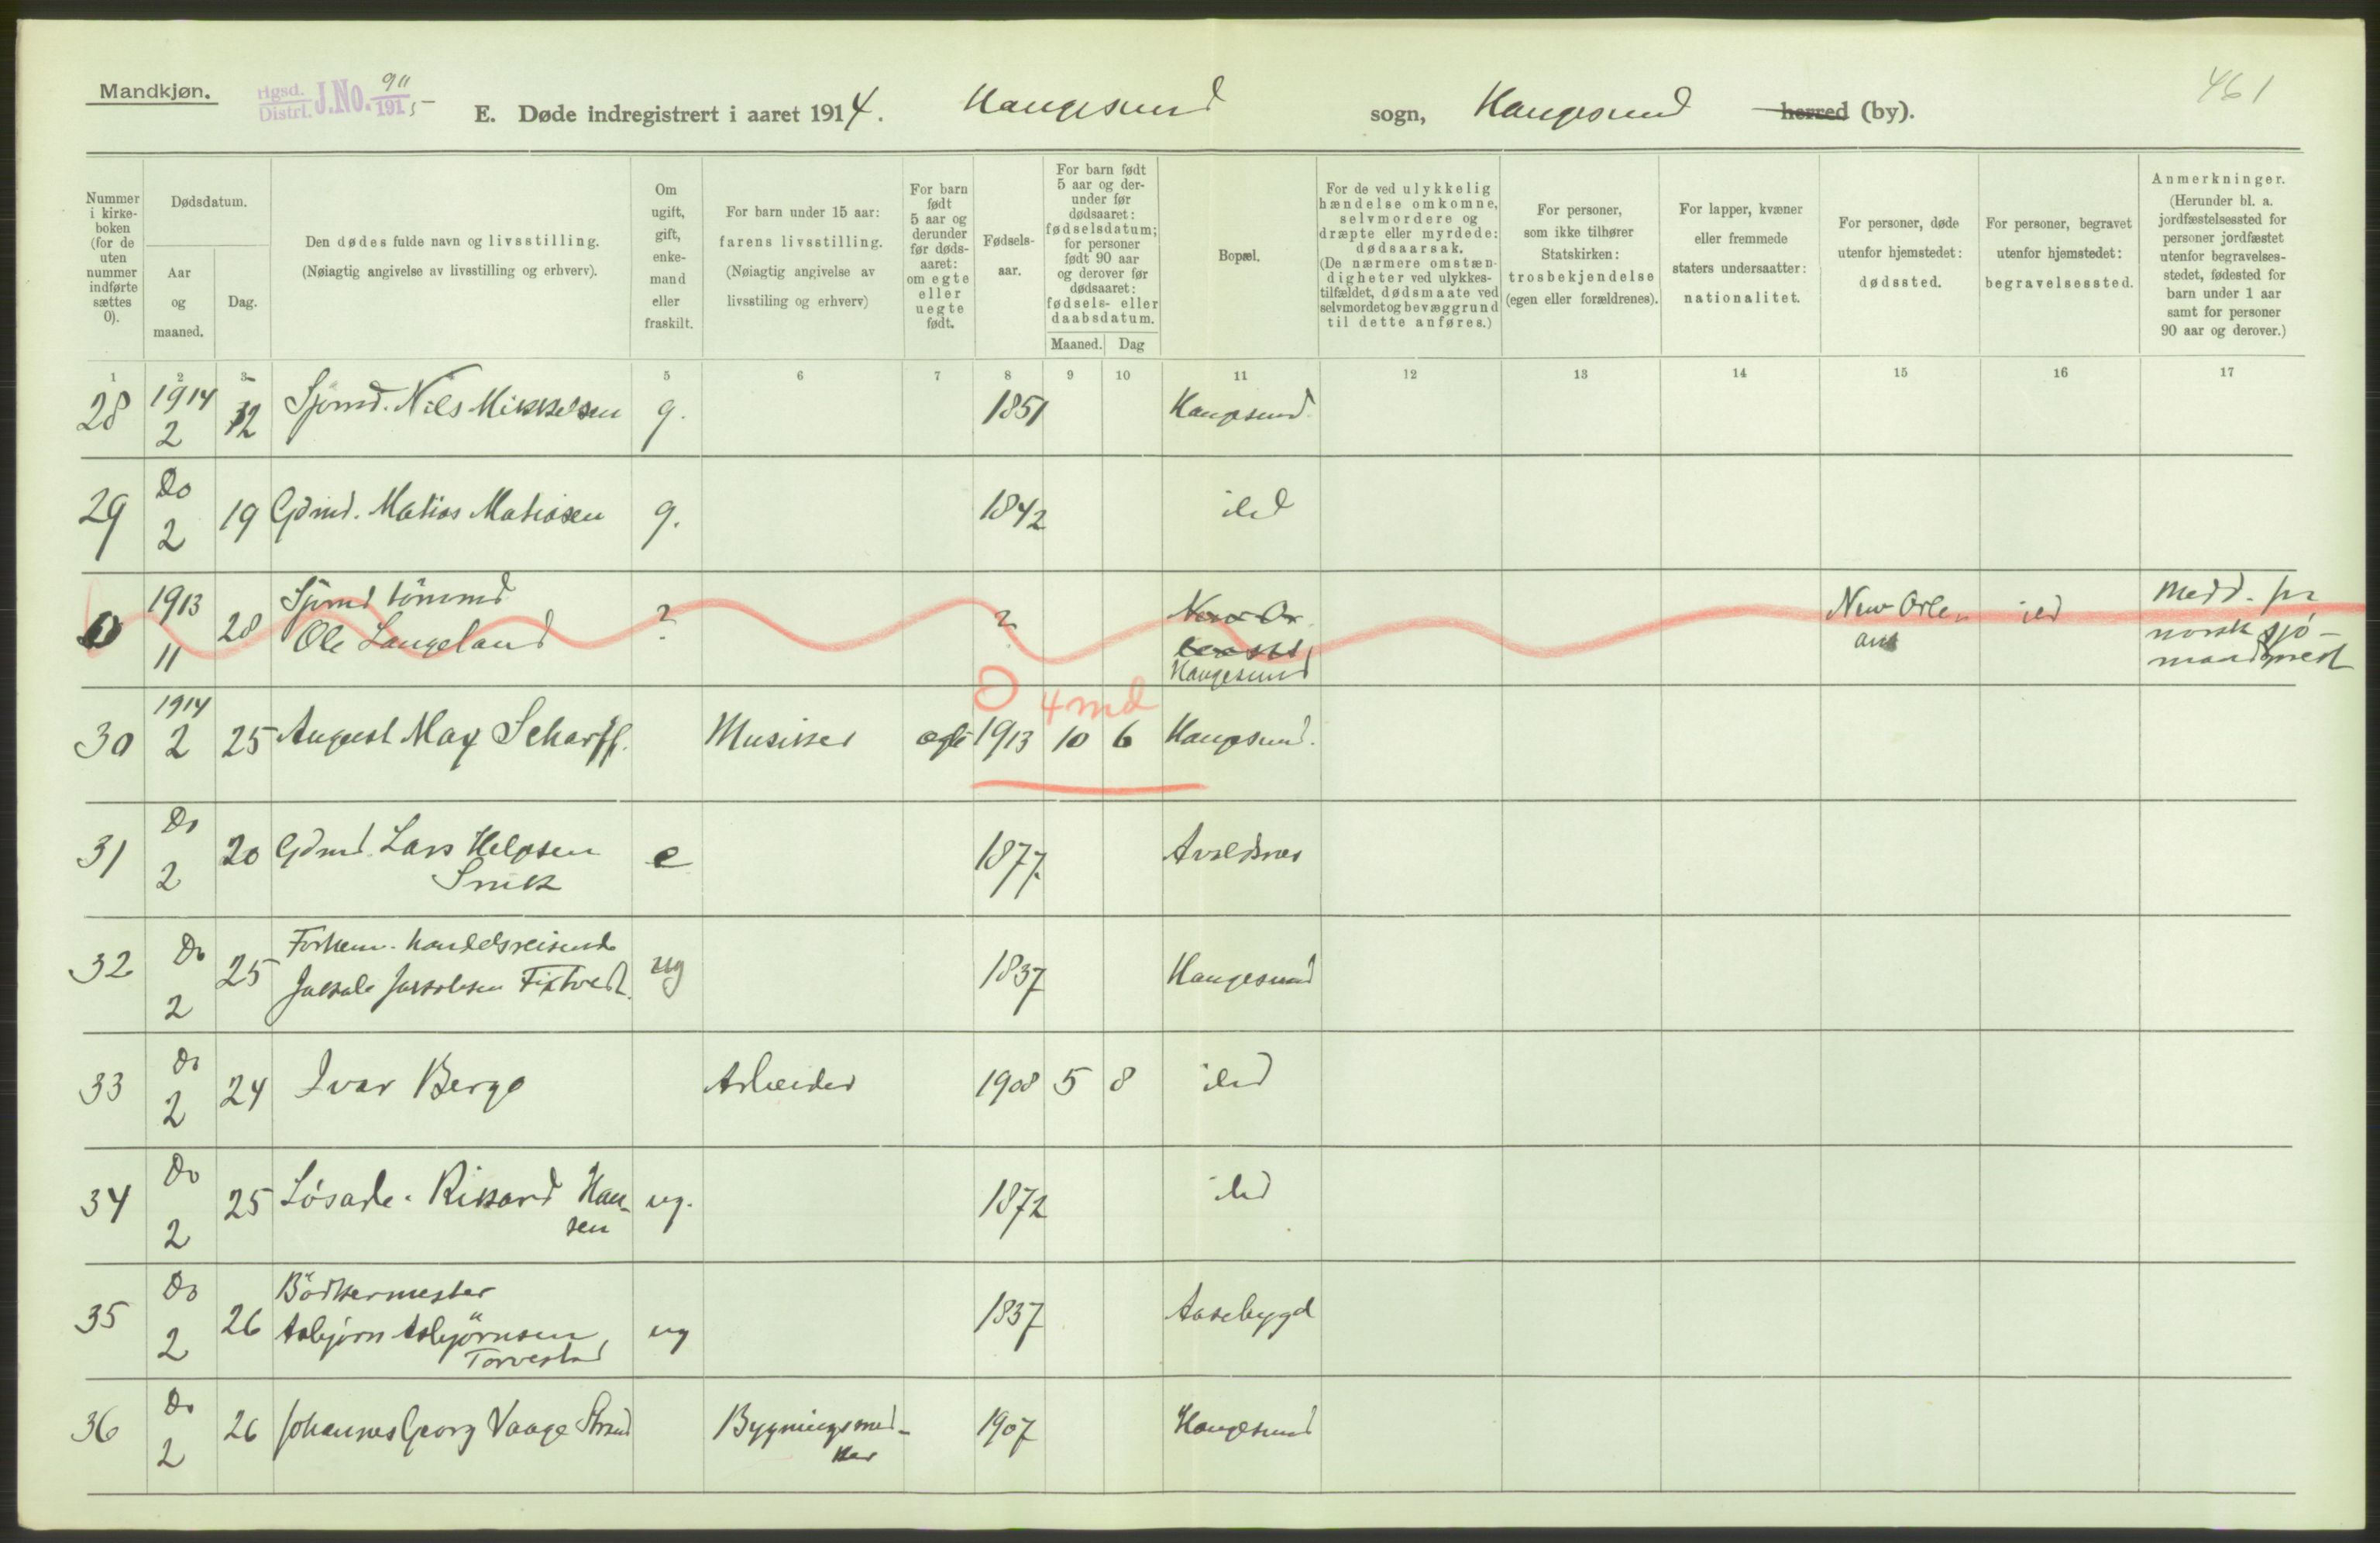 Mandkjøn.
rigsd. Distrl. J.No. 911 1915
E. Døde indregistrert i aaret 1914. Haugesund sogn, Haugesund herred (by).
461
Nummer i kirke-boken (for de uten nummer indførte sættes 0).
Dødsdatum.
Aar og maaned.
Dag.
Den dødes fulde navn og livsstilling.
(Nøiagtig angivelse av livsstilling og erhverv).
Om ugift, gift, enke-mand eller fraskilt.
For barn under 15 aar: farens livsstilling.
(Nøiagtig angivelse av livsstiling og erhverv)
For barn født 5 aar og derunder før døds-aaret: om egte eller uegte født.
Fødsels-aar.
For barn født 5 aar og der-under før dødsaaret: fødselsdatum; for personer født 90 aar og derover før dødsaaret: fødsels- eller daabsdatum.
Maaned. Dag
Bopæl.
For de ved ulykkelig hændelse omkomne, selvmordere og dræpte eller myrdede: dødsaarsak.
(De nærmere omstæn-digheter ved ulykkes-tilfældet, dødsmaate ved selvmordet og bevæggrund til dette anføres.)
For personer, som ikke tilhører Statskirken: trosbekjendelse (egen eller forældrenes).
For lapper, kvæner eller fremmede staters undersaatter: nationalitet.
For personer, døde utenfor hjemstedet: dødssted.
For personer, begravet utenfor hjemstedet: begravelsessted.
Anmerkninger.
(Herunder bl. a. jordfæstelsessted for personer jordfæstet utenfor begravelses-stedet, fødested for barn under 1 aar samt for personer 90 aar og derover.)
1 2 3 5 6 7 8 9 10 11 12 13 14 15 16 17
28 1914 2 12 Sjømd. Nils Mikkelsen g. 1851 Haugesund
29 Do 2 19 Gdmd. Matias Matiasen g. 1842 ibd
0 1913 11 28 Sjømd tömmd
Ole Langeland ? ? New Or
leans
Haugesund New Orle
ans ibd Medd. fra
norsk sjö-
mandsprest
0 4 md
30 1914 2 25 August Max Scharff. Musiker egte 1913 10 6 Haugesund.
31 Do 2 20 Gdmd. Lars Helgesen
Snik e 1877. Avaldsnes
32 Do 2 25 Forhen. handelsreisende
Jakob Jakobsen Fixtvedt ug 1837 Haugesund
33 Do 2 24 Ivar Berge Arbeider 1908 5 8 ibd
34 Do 2 25 Løsarb. Rikard Han-
sen ug. 1872 ibd
35 Do 2 26 Bödkermester
Asbjørn Asbjörnsen
Torvestad ug 1837 Aasebygd
36 Do 2 26 Johannes Georg Vaage Strand Bygningssned-
ker 1907 Haugesund